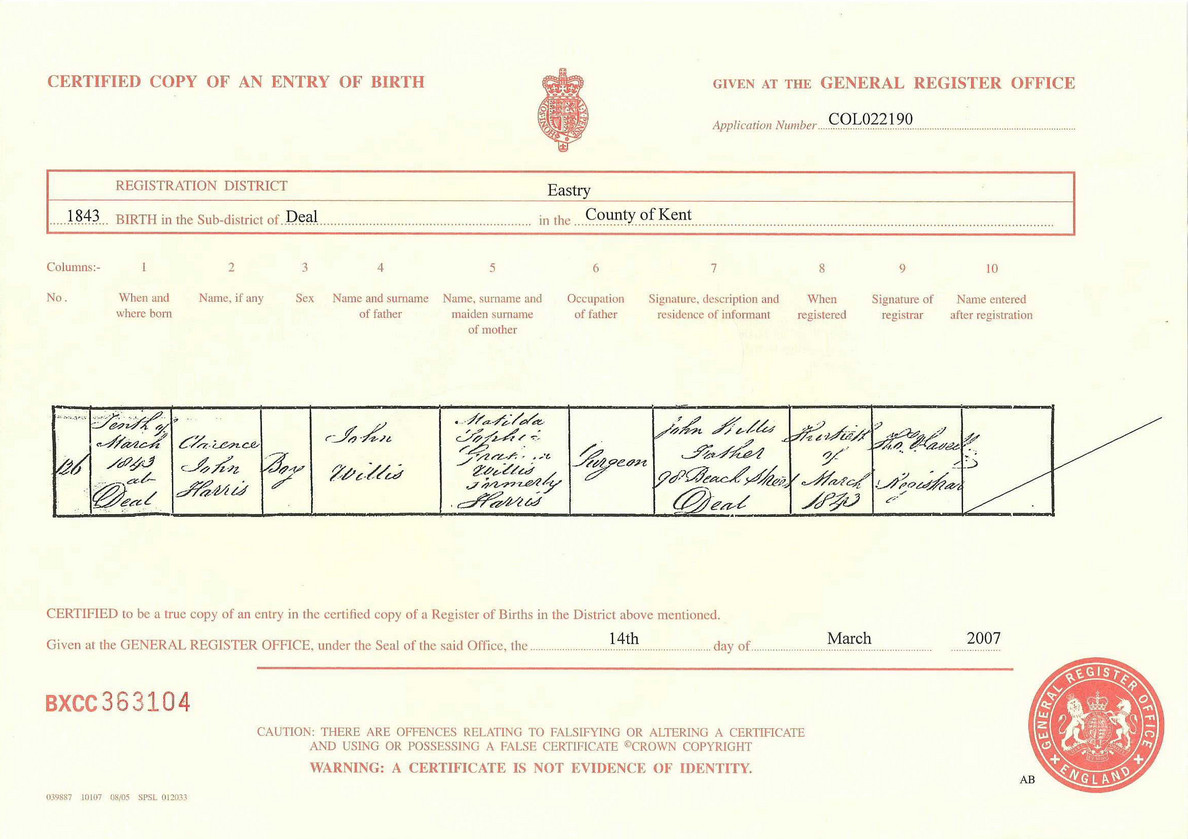 CERTIFIED COPY OF AN ENTRY OF BIRTH
GIVEN AT THE GENERAL REGISTER OFFICE
Application Number COL022190
REGISTRATION DISTRICT Eastry
1843 BIRTH in the Sub-district of Deal in the County of Kent
Columns:- 1 2 3 4 5 6 7 8 9 10
No. When and where born
Name, if any
Sex
Name and surname of father
Name, surname and maiden surname of mother
Occupation of father
Signature, description and residence of informant
When registered
Signature of registrar
Name entered after registration
126
Tenth of
March
1843
at
Deal
Clarence
John
Harris
Boy
John
Willis
Matilda
Sophia
Willis
formerly
Harris
Surgeon
John Willis
Father
98 Beach Street
Deal
Thirtieth
of
March
1843
Registrar
CERTIFIED to be a true copy of an entry in the certified copy of a Register of Births in the District above mentioned.
Given at the GENERAL REGISTER OFFICE, under the Seal of the said Office, the 14th day of March 2007
BXCC 363104
CAUTION: THERE ARE OFFENCES RELATING TO FALSIFYING OR ALTERING A CERTIFICATE
AND USING OR POSSESSING A FALSE CERTIFICATE ©CROWN COPYRIGHT
WARNING: A CERTIFICATE IS NOT EVIDENCE OF IDENTITY.
GENERAL REGISTER OFFICE
ENGLAND
AB
039887 10107 08/05 SPSL 012033